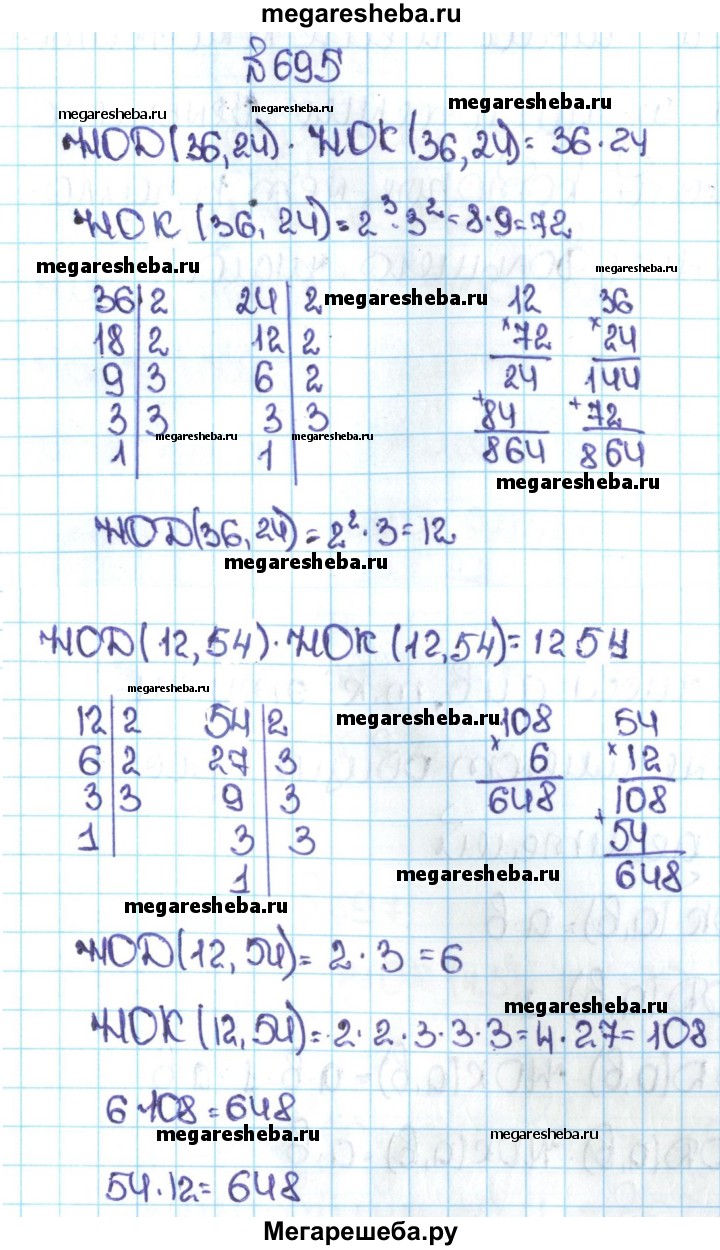 megaresheba.ru
№695
megaresheba.ru megaresheba.ru megaresheba.ru
НОД(36,24) · НОК(36,24) = 36 · 24
НОК (36, 24) = 2³ · 3² = 8 · 9 = 72
megaresheba.ru megaresheba.ru
36|2 24|2 megaresheba.ru 12 36
18|2 12|2 ×72 ×24
9|3 6|2 24 144
3|3 megaresheba.ru 3|3 megaresheba.ru +84 +72
1| 1| 864 864
megaresheba.ru
НОД(36,24) = 2² · 3 = 12
megaresheba.ru
НОД(12,54) · НОК(12,54) = 12 54
megaresheba.ru
12|2 54|2 megaresheba.ru 108 54
6|2 27|3 ×6 ×12
3|3 9|3 648 108
1| 3|3 +54
1| megaresheba.ru 648
megaresheba.ru
НОД(12,54) = 2 · 3 = 6
megaresheba.ru
НОК (12,54) = 2 · 2 · 3 · 3 · 3 = 4 · 27 = 108
6 · 108 = 648
megaresheba.ru megaresheba.ru
54 · 12 = 648
Мегарешеба.ру